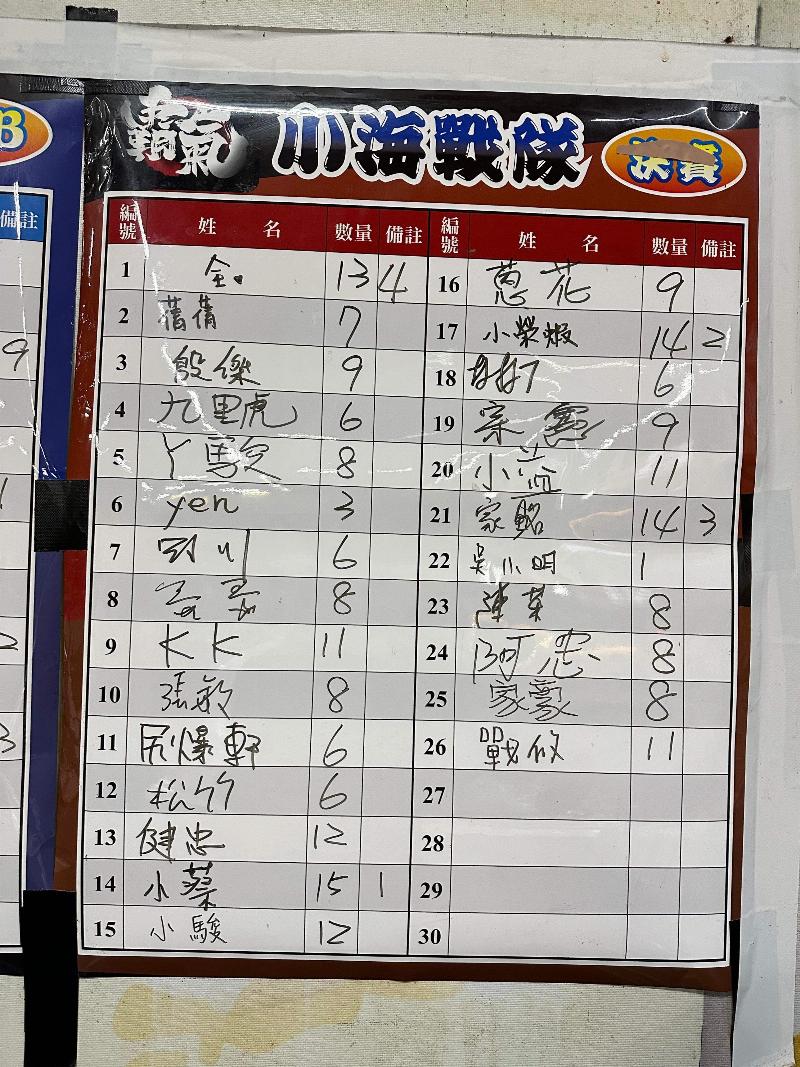 霸氣 小海戰隊 決賽
編號 姓名 數量 備註
1 金. 13 4
2 蒨蒨 7
3 殷傑 9
4 九里虎 6
5 丫 8
6 yen 3
7 6
8 8
9 KK 11
10 張敏 8
11 尻爆軒 6
12 松竹 6
13 健忠 12
14 小蔡 15 1
15 小駿 12
編號 姓名 數量 備註
16 蔥花 9
17 小榮蝦 14 2
18 6
19 宗憲 9
20 小益 11
21 家銘 14 3
22 吳小明 1
23 陳葉 8
24 阿忠 8
25 家豪 8
26 戰攸 11
27
28
29
30
B
備註
9
1
2
3